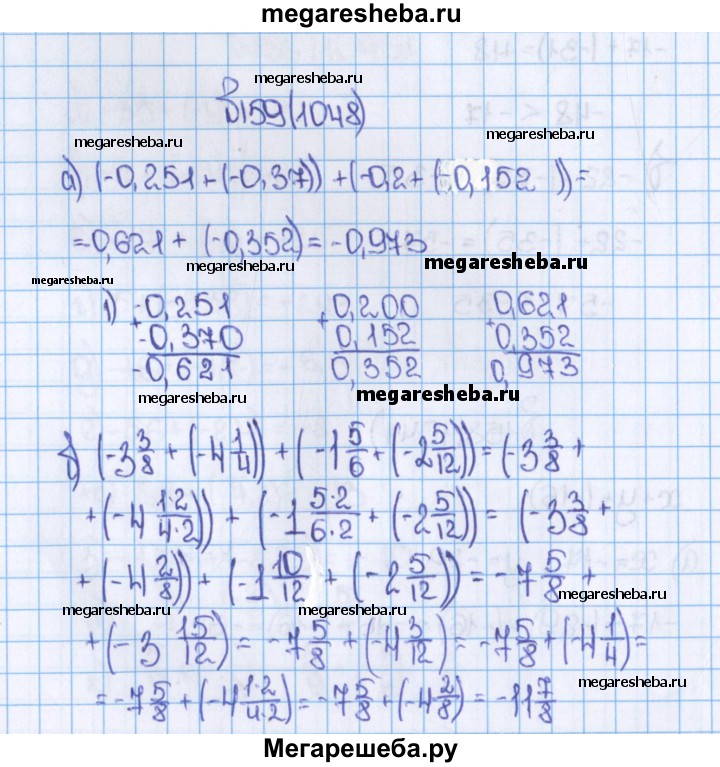 megaresheba.ru
megaresheba.ru
№159(1048)
megaresheba.ru megaresheba.ru
а) (-0,251+(-0,37))+(-0,2+(-0,152))=
=-0,621+(-0,352)=-0,973
megaresheba.ru megaresheba.ru megaresheba.ru
1) -0,251 0,200 0,621
+ -0,370 + 0,152 + 0,352
-0,621 0,352 0,973
megaresheba.ru megaresheba.ru
б) (-3 3/8 + (-4 1/4)) + (-1 5/6 + (-2 5/12)) = (-3 3/8 +
+ (-4 1·2/4·2)) + (-1 5·2/6·2 + (-2 5/12)) = (-3 3/8 +
+ (-4 2/8)) + (-1 10/12 + (-2 5/12)) = -7 5/8 +
megaresheba.ru megaresheba.ru
+ (-3 15/12) = -7 5/8 + (-4 3/12) = -7 5/8 + (-4 1/4) =
megaresheba.ru
= -7 5/8 + (-4 1·2/4·2) = -7 5/8 + (-4 2/8) = -11 7/8
Мегарешеба.ру